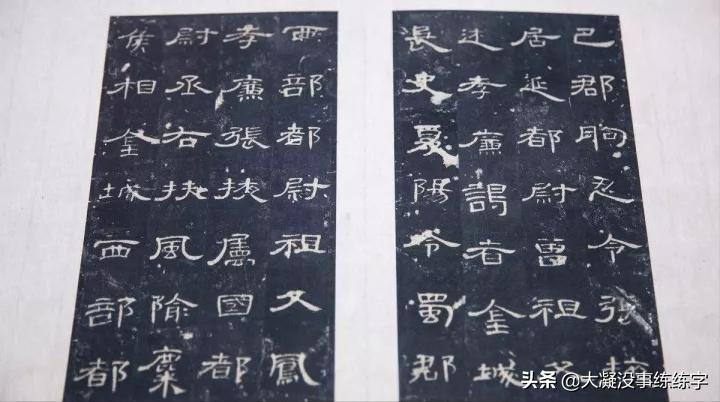 巴郡朐忍令張掖
居延都尉曾祖父
述孝廉謁者金城
長史夏陽令蜀郡
西部都尉祖父鳳
孝廉張掖屬國都
尉丞右扶風隃麋
侯相金城西部都
头条 @大凝没事练练字